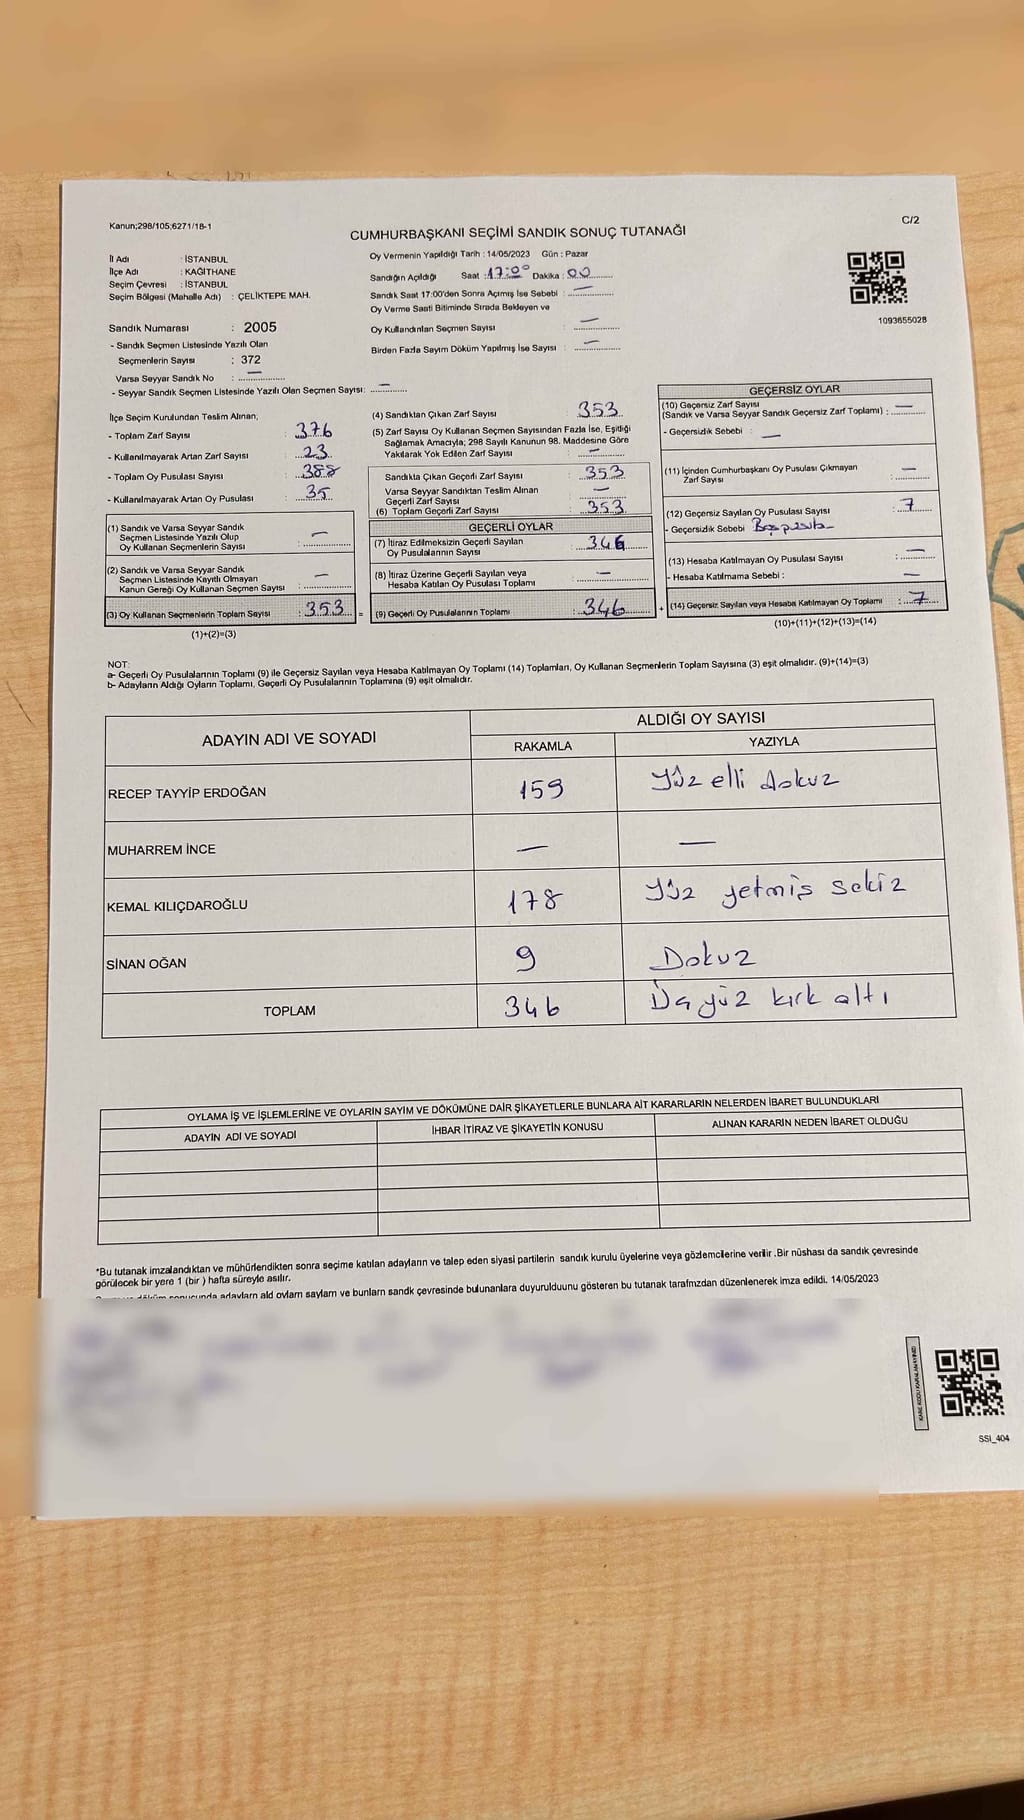 Kanun;298/105;6271/18-1
C/2
CUMHURBAŞKANI SEÇİMİ SANDIK SONUÇ TUTANAĞI
İl Adı : İSTANBUL
İlçe Adı : KAĞITHANE
Seçim Çevresi : İSTANBUL
Seçim Bölgesi (Mahalle Adı) : ÇELİKTEPE MAH.
Sandık Numarası : 2005
- Sandık Seçmen Listesinde Yazılı Olan
Seçmenlerin Sayısı : 372
Varsa Seyyar Sandık No : —
- Seyyar Sandık Seçmen Listesinde Yazılı Olan Seçmen Sayısı: —
Oy Vermenin Yapıldığı Tarih : 14/05/2023 Gün : Pazar
Sandığın Açıldığı Saat :17:00 Dakika : 00
Sandık Saat 17:00'den Sonra Açımış İse Sebebi : —
Oy Verme Saati Bitiminde Sırada Bekleyen ve
Oy Kullandırılan Seçmen Sayısı : —
Birden Fazla Sayım Döküm Yapılmış İse Sayısı : —
1093655028
İlçe Seçim Kurulundan Teslim Alınan;
- Toplam Zarf Sayısı : 376
- Kullanılmayarak Artan Zarf Sayısı : 23
- Toplam Oy Pusulası Sayısı : 388
- Kullanılmayarak Artan Oy Pusulası : 35
(1) Sandık ve Varsa Seyyar Sandık
Seçmen Listesinde Yazılı Olup
Oy Kullanan Seçmenlerin Sayısı : —
(2) Sandık ve Varsa Seyyar Sandık
Seçmen Listesinde Kayıtlı Olmayan
Kanun Gereği Oy Kullanan Seçmen Sayısı : —
(3) Oy Kullanan Seçmenlerin Toplam Sayısı : 353 =
(1)+(2)=(3)
(4) Sandıktan Çıkan Zarf Sayısı : 353
(5) Zarf Sayısı Oy Kullanan Seçmen Sayısından Fazla İse, Eşitliği
Sağlamak Amacıyla; 298 Sayılı Kanunun 98. Maddesine Göre
Yakılarak Yok Edilen Zarf Sayısı : —
Sandıkta Çıkan Geçerli Zarf Sayısı : 353
Varsa Seyyar Sandıktan Teslim Alınan
Geçerli Zarf Sayısı : —
(6) Toplam Geçerli Zarf Sayısı : 353
GEÇERLİ OYLAR
(7) İtiraz Edilmeksizin Geçerli Sayılan
Oy Pusulalarının Sayısı : 346
(8) İtiraz Üzerine Geçerli Sayılan veya
Hesaba Katılan Oy Pusulası Toplamı : —
(9) Geçerli Oy Pusulalarının Toplamı : 346 +
GEÇERSİZ OYLAR
(10) Geçersiz Zarf Sayısı
(Sandık ve Varsa Seyyar Sandık Geçersiz Zarf Toplamı) : —
- Geçersizlik Sebebi : —
(11) İçinden Cumhurbaşkanı Oy Pusulası Çıkmayan
Zarf Sayısı : —
(12) Geçersiz Sayılan Oy Pusulası Sayısı : 7
- Geçersizlik Sebebi
(13) Hesaba Katılmayan Oy Pusulası Sayısı : —
- Hesaba Katılmama Sebebi : —
(14) Geçersiz Sayılan veya Hesaba Katılmayan Oy Toplamı : 7
(10)+(11)+(12)+(13)=(14)
NOT:
a- Geçerli Oy Pusulalarının Toplamı (9) ile Geçersiz Sayılan veya Hesaba Katılmayan Oy Toplamı (14) Toplamları, Oy Kullanan Seçmenlerin Toplam Sayısına (3) eşit olmalıdır. (9)+(14)=(3)
b- Adayların Aldığı Oyların Toplamı, Geçerli Oy Pusulalarının Toplamına (9) eşit olmalıdır.
ADAYIN ADI VE SOYADI
ALDIĞI OY SAYISI
RAKAMLA YAZIYLA
RECEP TAYYİP ERDOĞAN 159 Yüz elli dokuz
MUHARREM İNCE — —
KEMAL KILIÇDAROĞLU 178 Yüz yetmiş sekiz
SİNAN OĞAN 9 Dokuz
TOPLAM 346 Üçyüz kırk altı
OYLAMA İŞ VE İŞLEMLERİNE VE OYLARIN SAYIM VE DÖKÜMÜNE DAİR ŞİKAYETLERLE BUNLARA AİT KARARLARIN NELERDEN İBARET BULUNDUKLARI
ADAYIN ADI VE SOYADI İHBAR İTİRAZ VE ŞİKAYETİN KONUSU ALINAN KARARIN NEDEN İBARET OLDUĞU
*Bu tutanak imzalandıktan ve mühürlendikten sonra seçime katılan adayların ve talep eden siyasi partilerin sandık kurulu üyelerine veya gözlemcilerine verilir .Bir nüshası da sandık çevresinde
görülecek bir yere 1 (bir ) hafta süreyle asılır.
sonucunda adayların ald oyların sayların ve bunların sandk çevresinde bulunanlara duyurulduunu gösteren bu tutanak tarafmzdan düzenlenerek imza edildi. 14/05/2023
SSI_404